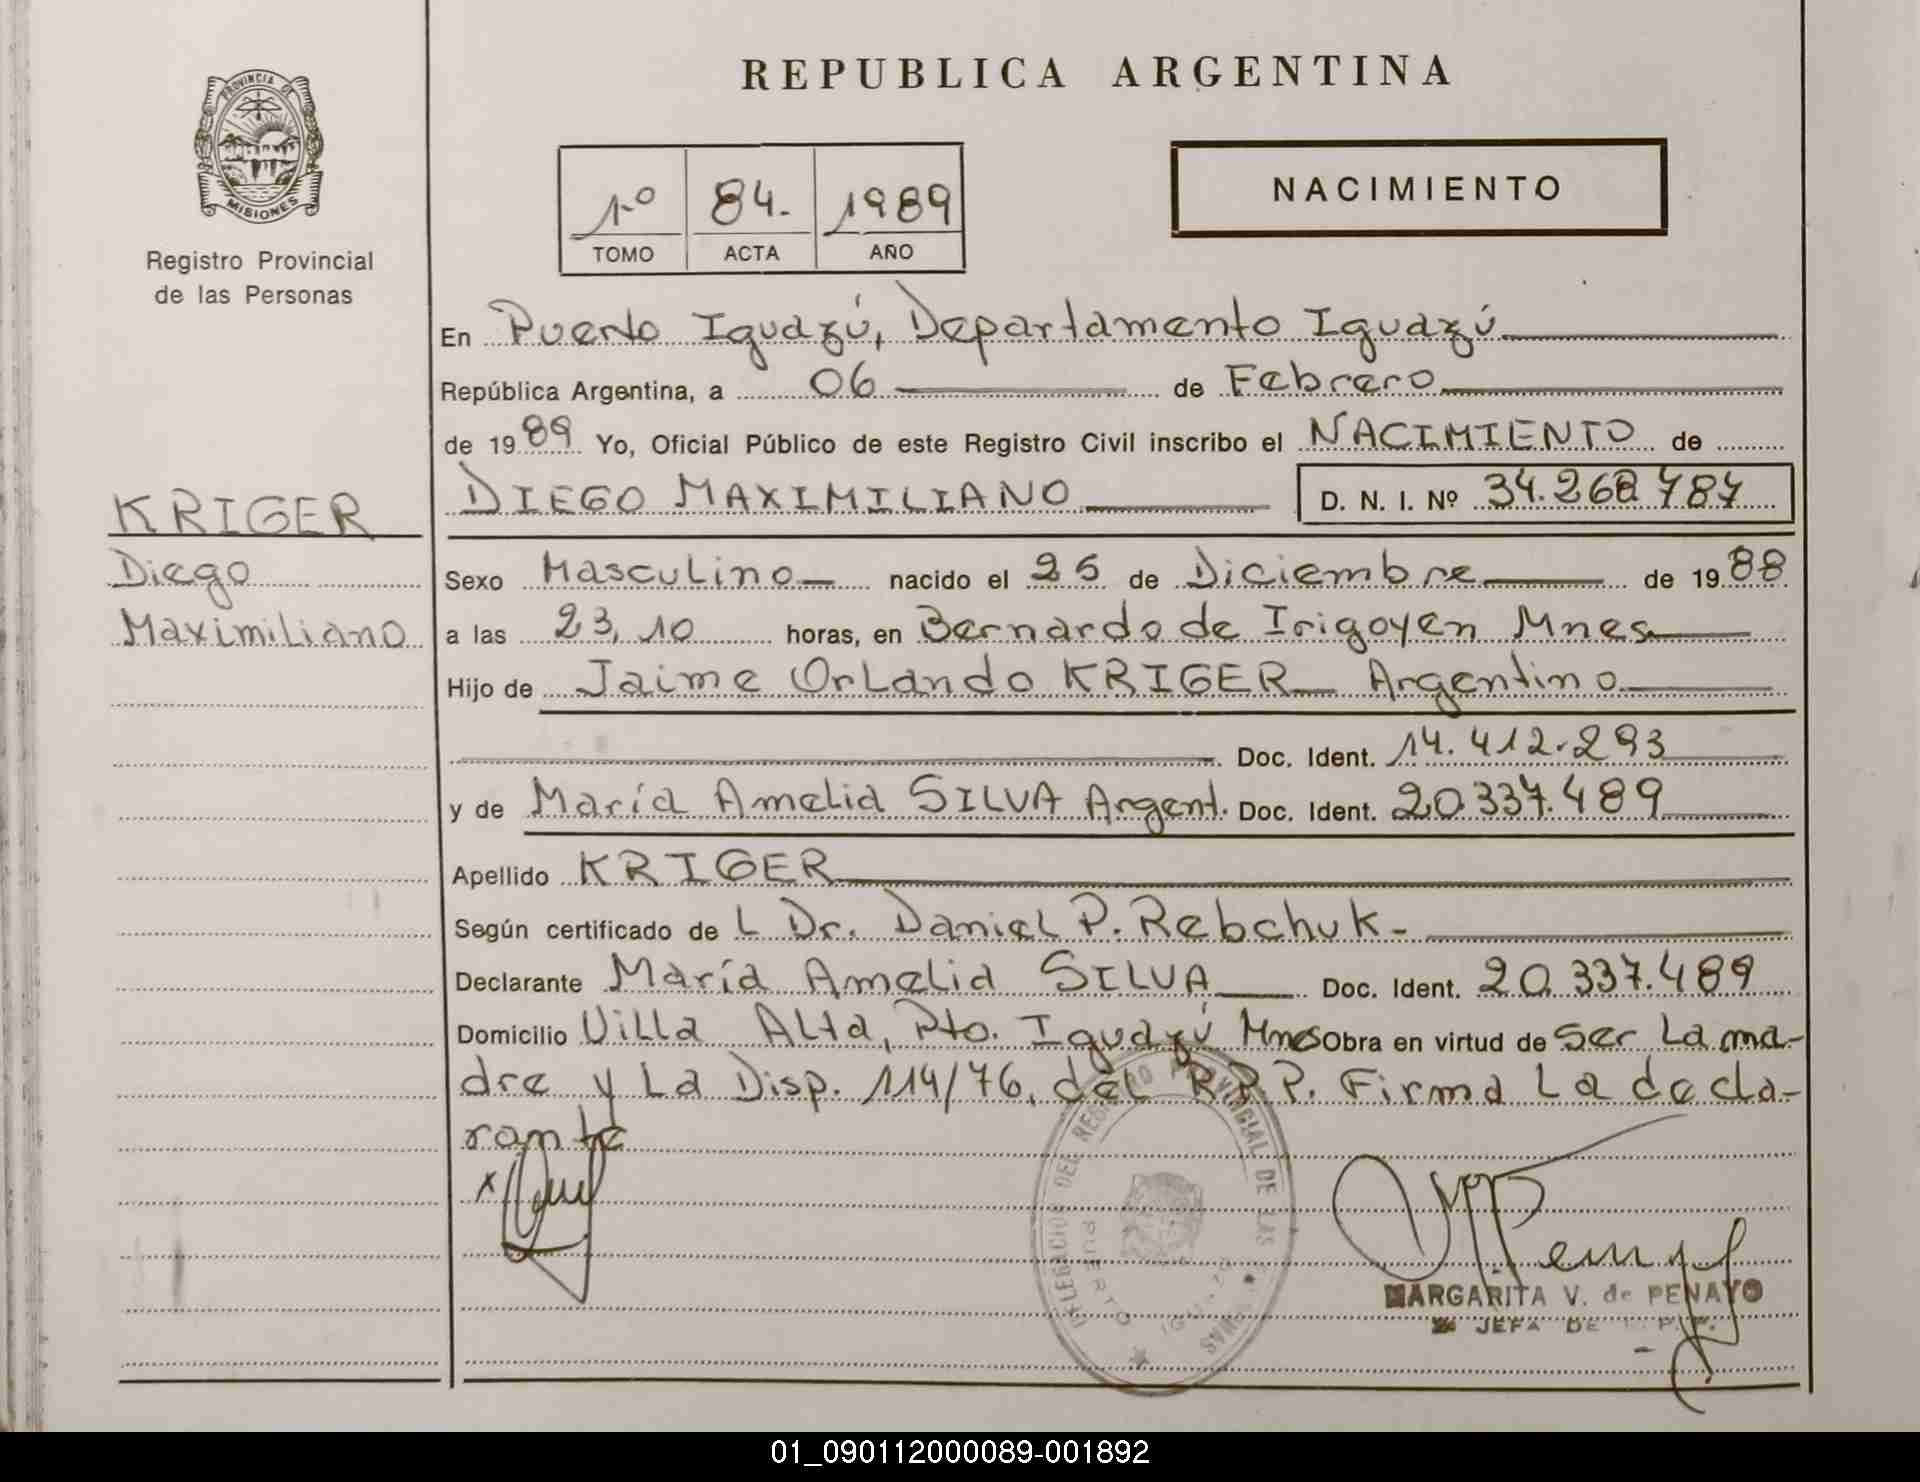 REPUBLICA ARGENTINA
PROVINCIA DE
MISIONES
Registro Provincial
de las Personas
1º 84. 1989
TOMO ACTA AÑO
NACIMIENTO
En Puerto Iguazú, Departamento Iguazú
República Argentina, a 06 de Febrero
de 1989 Yo, Oficial Público de este Registro Civil inscribo el NACIMIENTO de
DIEGO MAXIMILIANO D. N. I. Nº 34.268.787
KRIGER
Diego
Maximiliano
Sexo Masculino nacido el 25 de Diciembre de 1988
a las 23,10 horas, en Bernardo de Irigoyen Mnes
Hijo de Jaime Orlando KRIGER Argentino
Doc. Ident. 14.412.293
y de María Amelia SILVA Argent. Doc. Ident. 20.337.489
Apellido KRIGER
Según certificado de L Dr. Daniel P. Rebchuk-
Declarante María Amelia SILVA Doc. Ident. 20.337.489
Domicilio Villa Alta, Pto. Iguazú Mnes Obra en virtud de ser La ma-
dre y La Disp. 114/76, del R.P.P. Firma La decla-
rante
x
DELEGACION DEL REGISTRO PROVINCIAL DE LAS PERSONAS
PUERTO IGUAZU
MARGARITA V. de PENAYO
JEFA DE
01_090112000089-001892